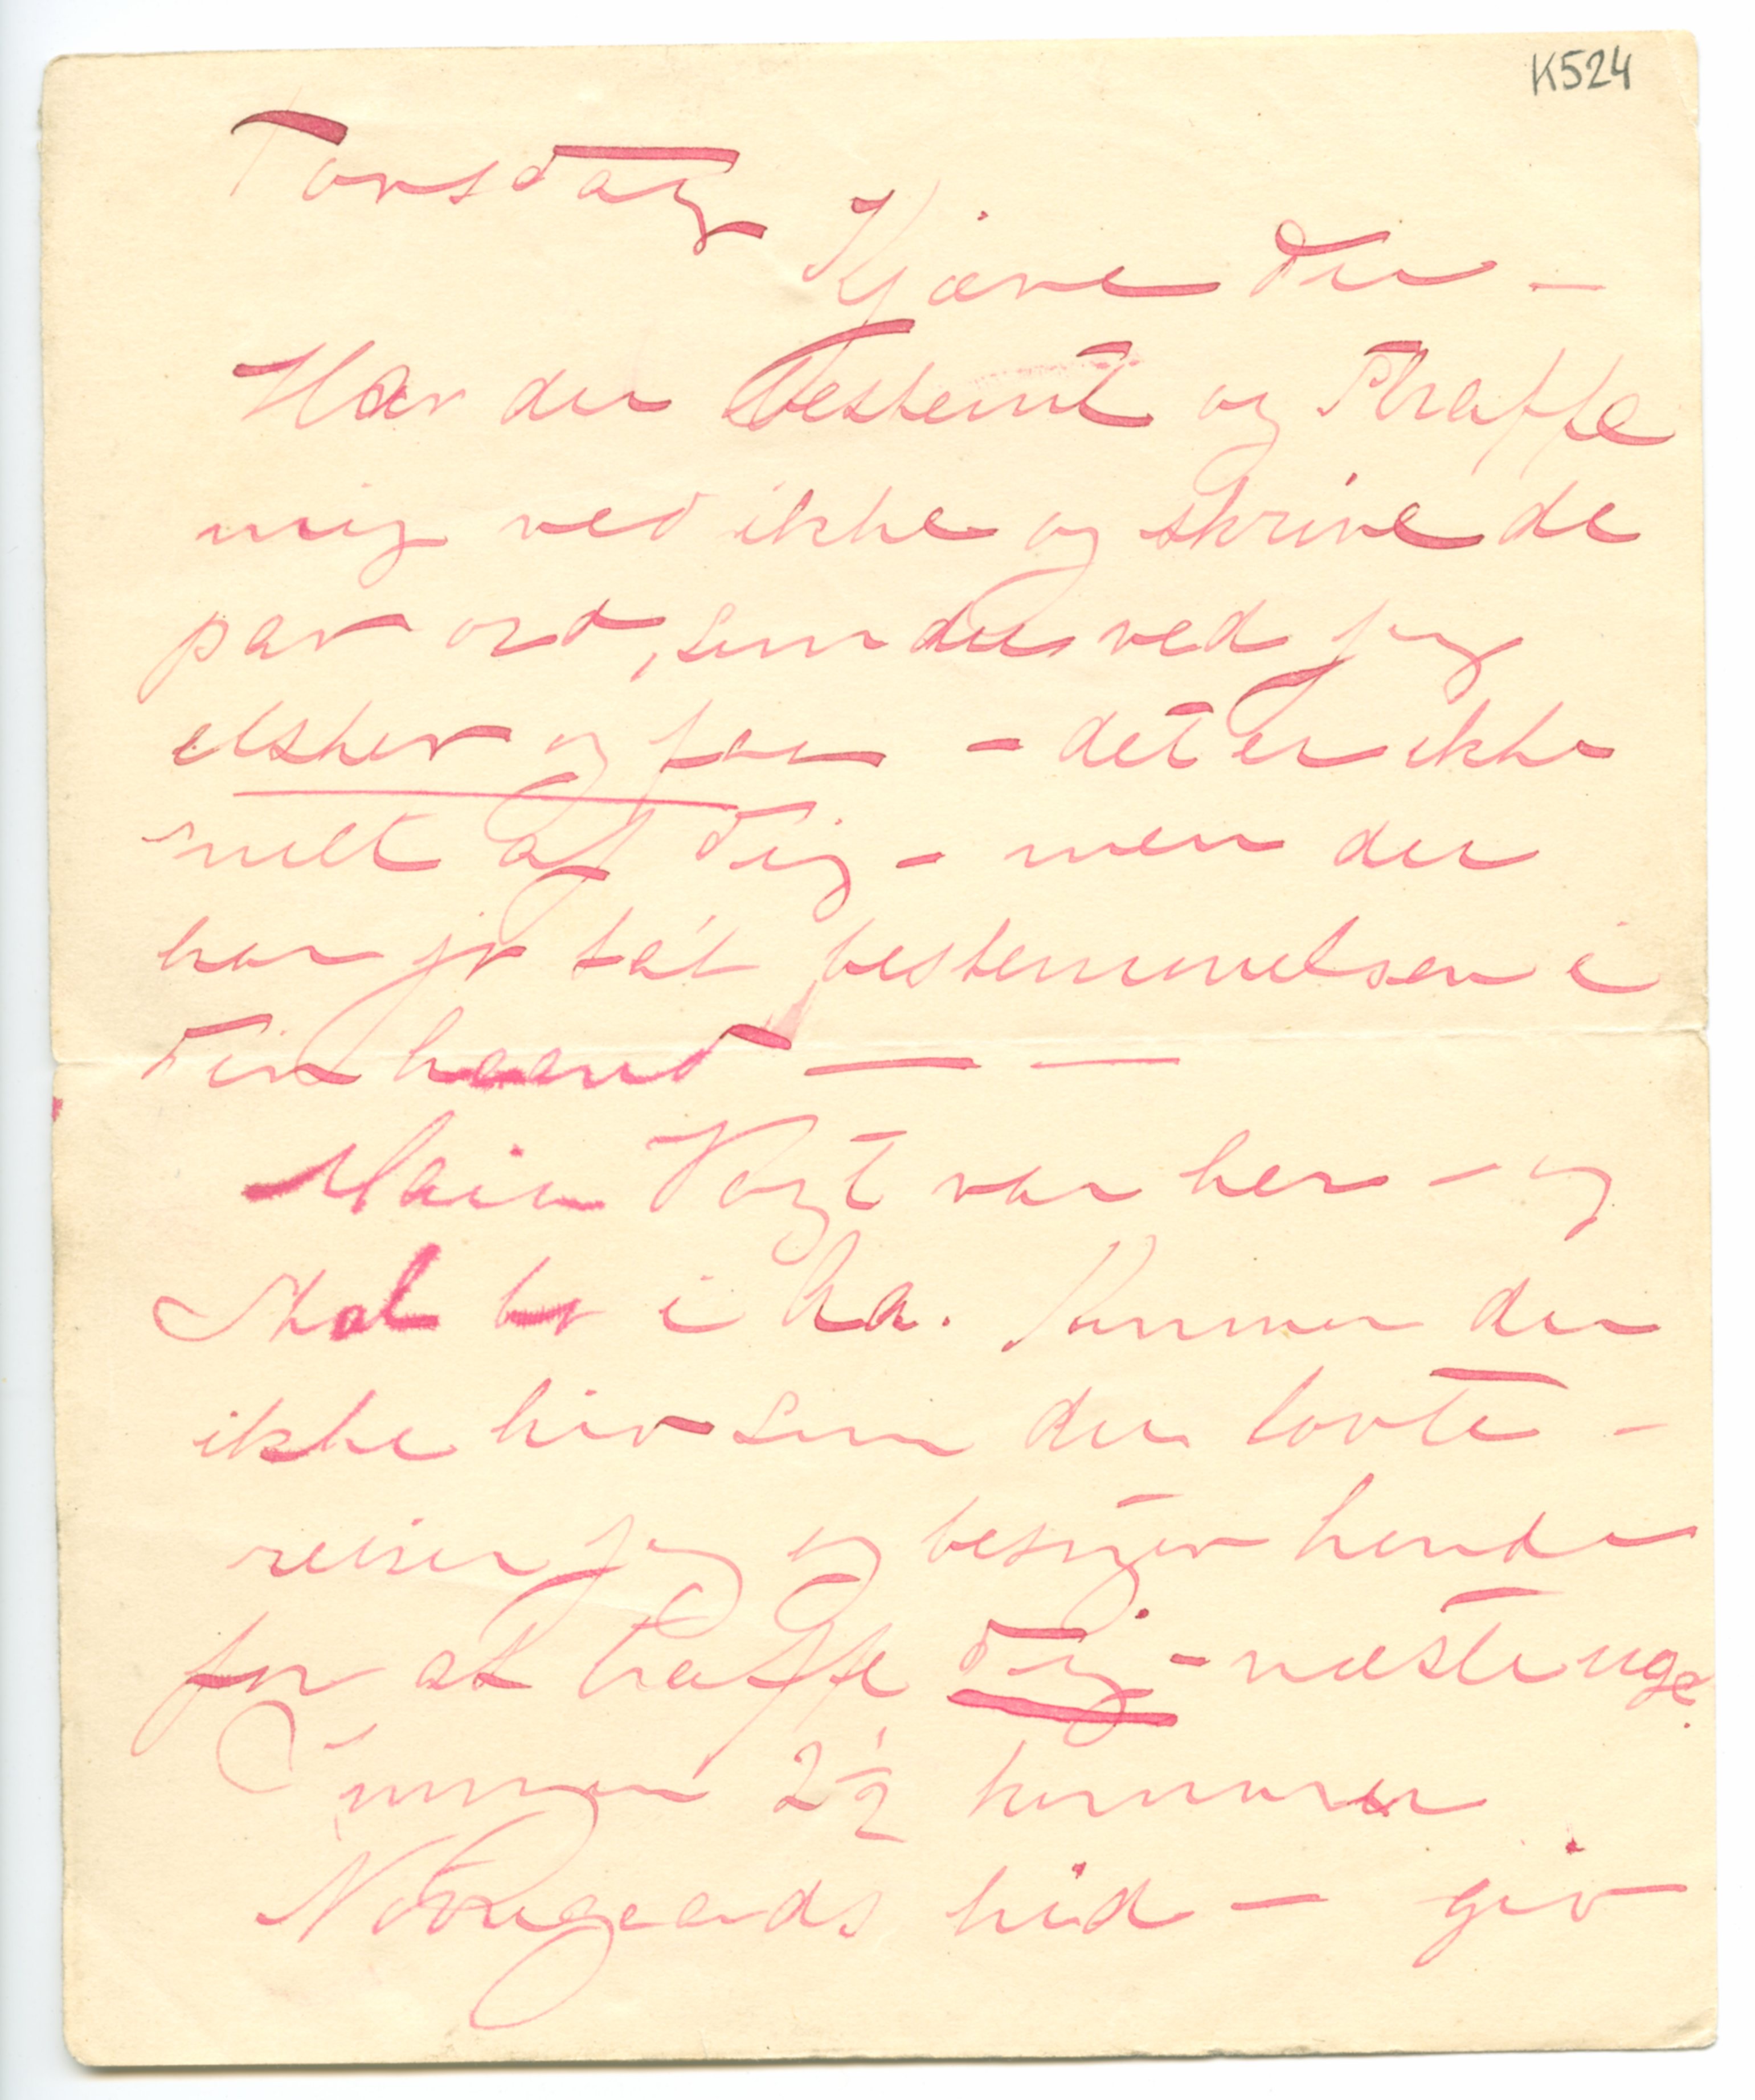 K524
Torsdag
Kjære du –
Har du bestemt og straffe
mig ved ikke og skrive de
par ord, som du ved jeg
elsker og faa – det er ikke
snilt af dig – men du
har jo tat bestemmelsen i
din haand — —
Maia Vogt var her – og
skal bo i Ha. Kommer du
ikke hid som du lovte –
reiser jeg og besøger hende
for at træffe dig – næste uge.
Imorgen 2½ kommer
Nørregaards hid – giv